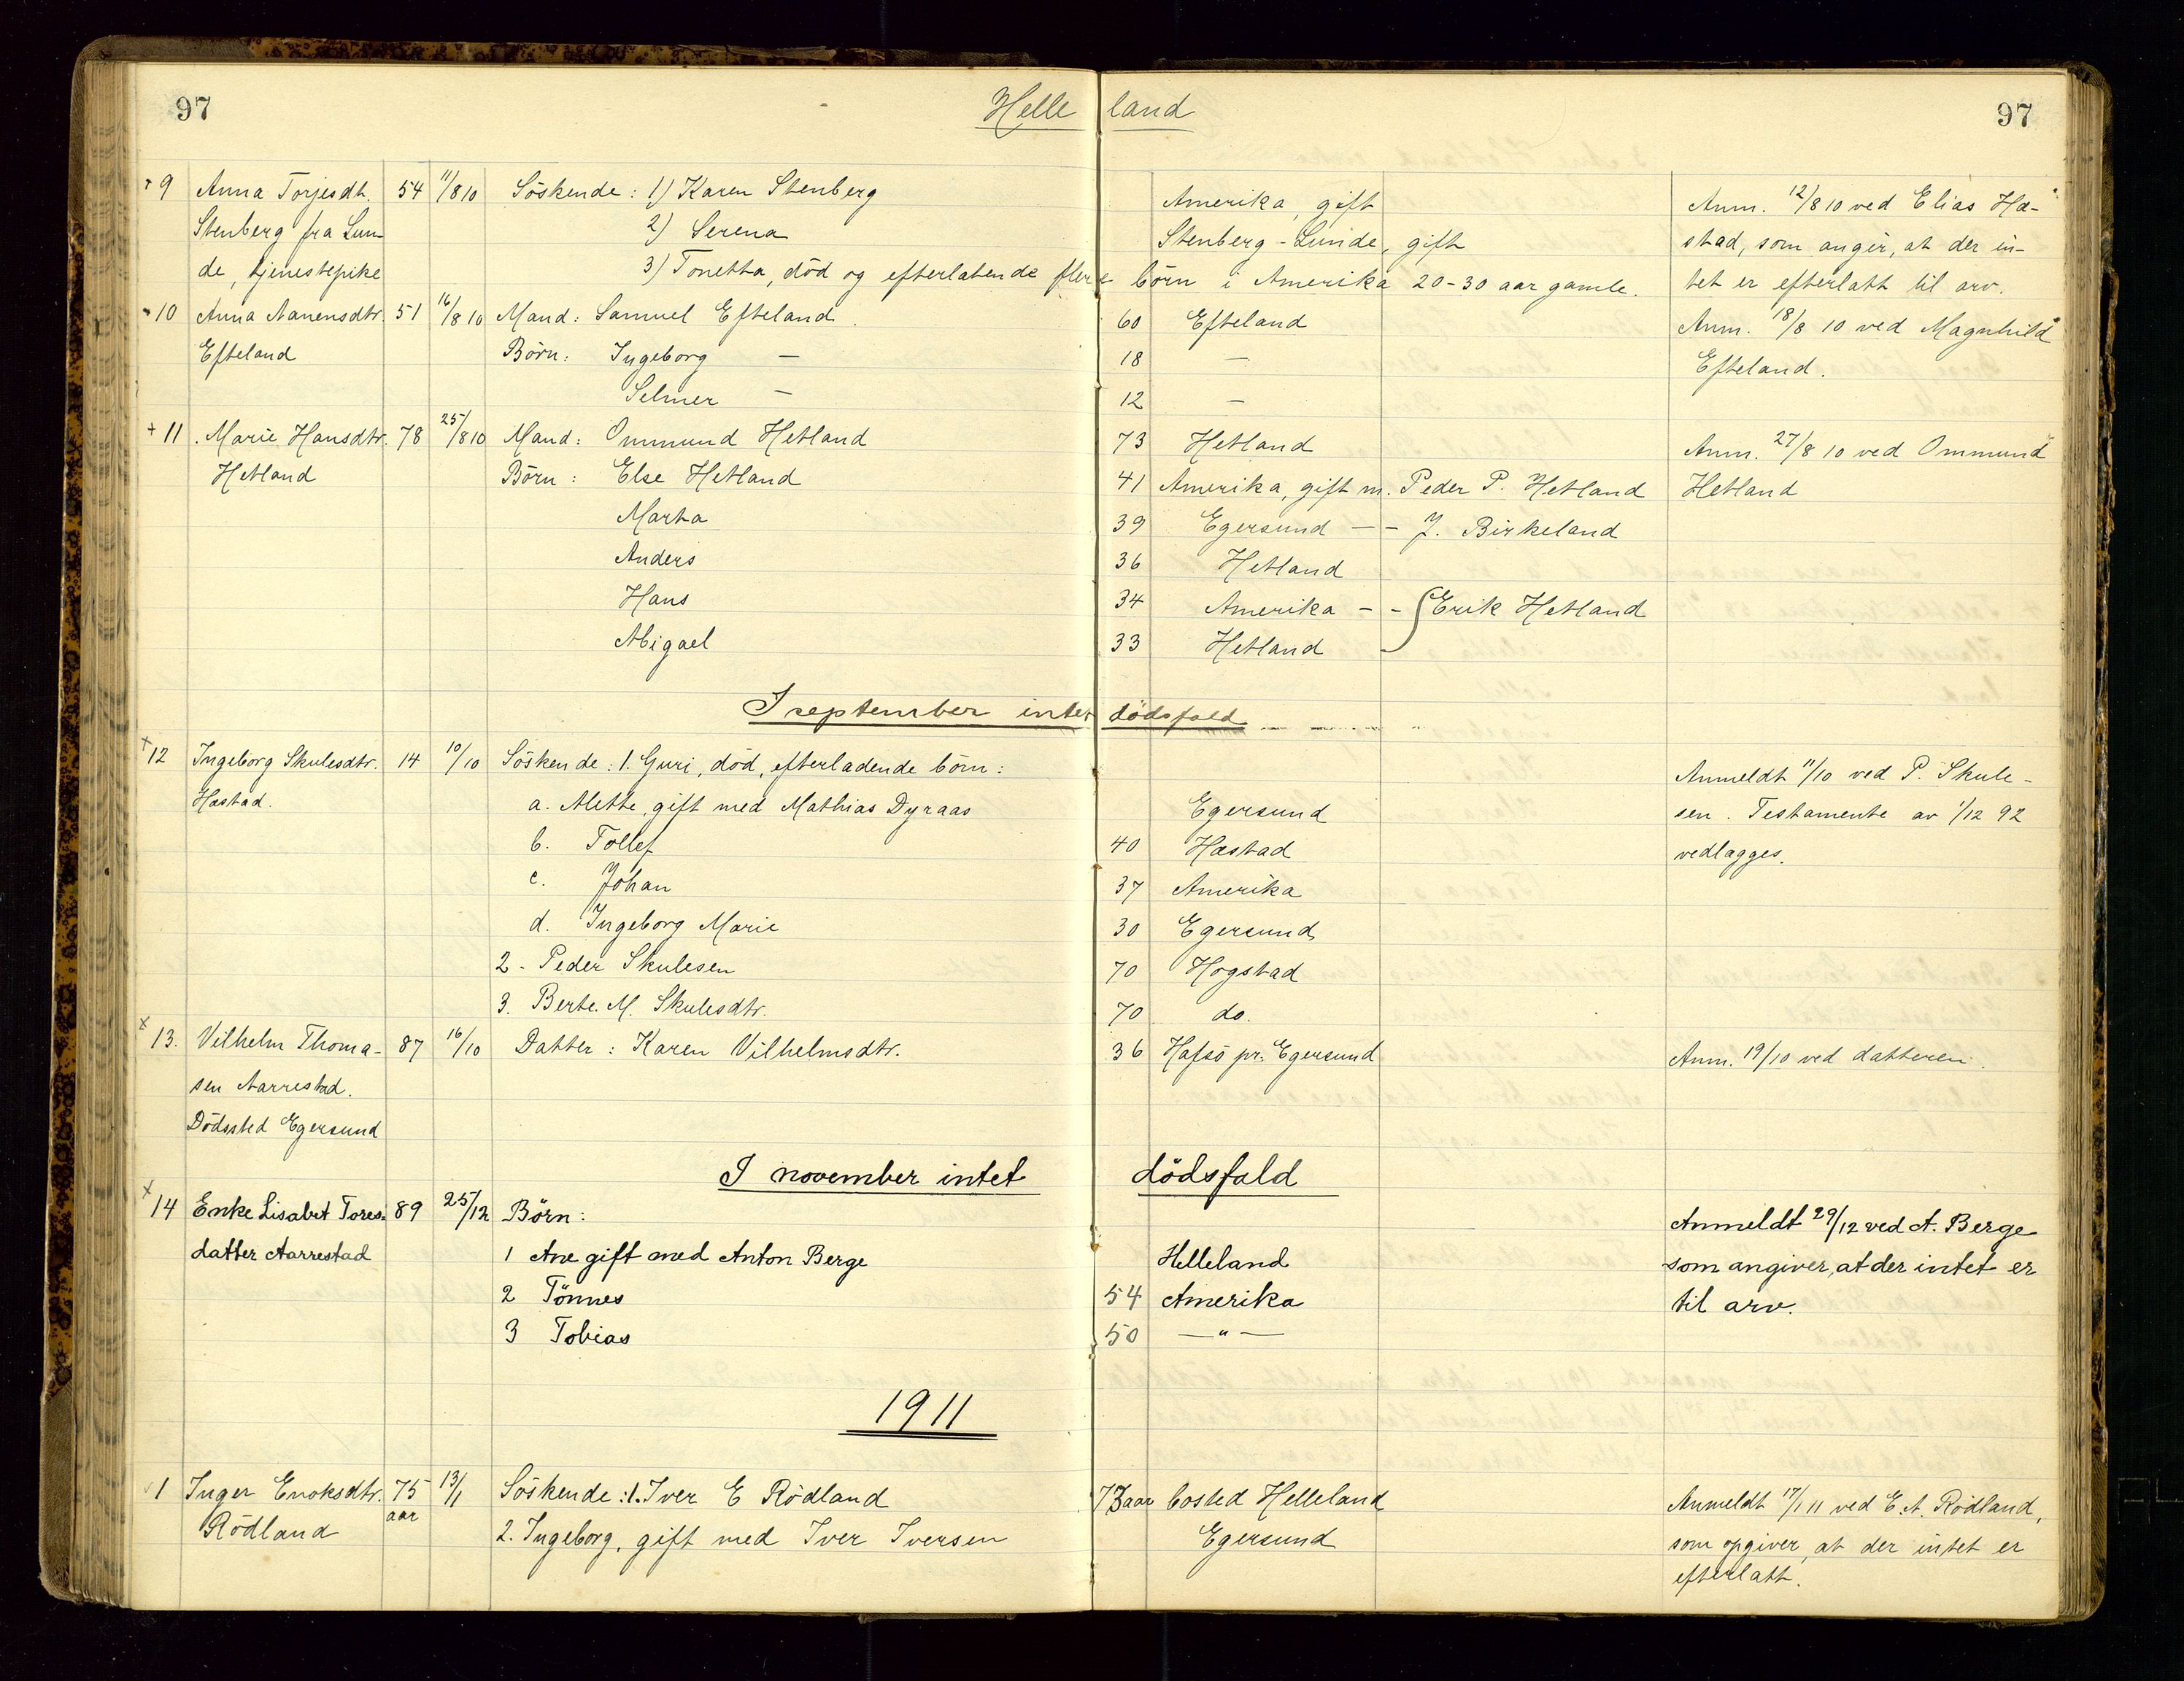 97 Helleland 97
+9 Anna Torjesdt. 54 11/8 10 Söskende: 1) Karen Stenberg Amerika, gift Anm. 12/8 10 ved Elias Hæ-
Stenberg fra Lun- 2) Serena Stenberg-Lunde, gift stad, som angir, at der in-
de, tjenestepike 3) Tonetta, död og efterlatende flere börn i Amerika 20-30 aar gamle. tet er efterlatt til arv.
10 Anna Aanensdtr. 51 16/8 10 Mand: Samuel Efteland. 60 Efteland Anm. 18/8 10 ved Magnhild
Efteland Börn: Ingeborg — 18 — Efteland.
Selmer — 12 —
+11. Marie Hansdtr. 78 25/8 10 Mand: Ommund Hetland 73 Hetland Anm. 27/8 10 ved Ommund
Hetland Börn: Else Hetland 41 Amerika, gift m. Peder P. Hetland Hetland
Marta 39 Egersund — – J. Birkeland
Anders 36 Hetland
Hans 34 Amerika – – Erik Hetland
Abigael 33 Hetland
I september intet dödsfald
+12 Ingeborg Skulesdtr. 14 10/10 Söskende: 1. Guri, död, efterladende börn: Anmeldt 11/10 ved P. Skule-
Hæstad. a. Alette, gift med Mathias Dyraas Egersund sen. Testamente av 1/12 92
b. Tollef 40 Hæstad vedlægges.
c. Johan 37 Amerika
d. Ingeborg Marie 30 Egersund
2. Peder Skulesen 70 Hogstad
3. Berte. M. Skulesdtr. 70 do.
x 13. Vilhelm Thoma- 87 16/10 Datter: Karen Vilhelmsdtr. 36 Hafsö pr. Egersund Anm. 19/10 ved datteren.
sen Aarrestad.
Dödssted Egersund
I november intet dödsfald
x 14 Enke Lisabet Tores- 89 25/12 Börn: Anmeldt 29/12 ved A. Berge
datter Aarrestad 1 Ane gift med Anton Berge Helleland som angiver, at der intet er
2 Tönnes 54 Amerika til arv.
3 Tobias 50 —"—
1911
1 Inger Enoksdtr. 75 13/1 Söskende: 1. Iver E Rödland 73 aar bosted Helleland Anmeldt 17/1 11 ved E. A. Rödland,
Rödland aar 2. Ingeborg, gift med Iver Iversen Egersund som opgiver, at der intet er
efterlatt.